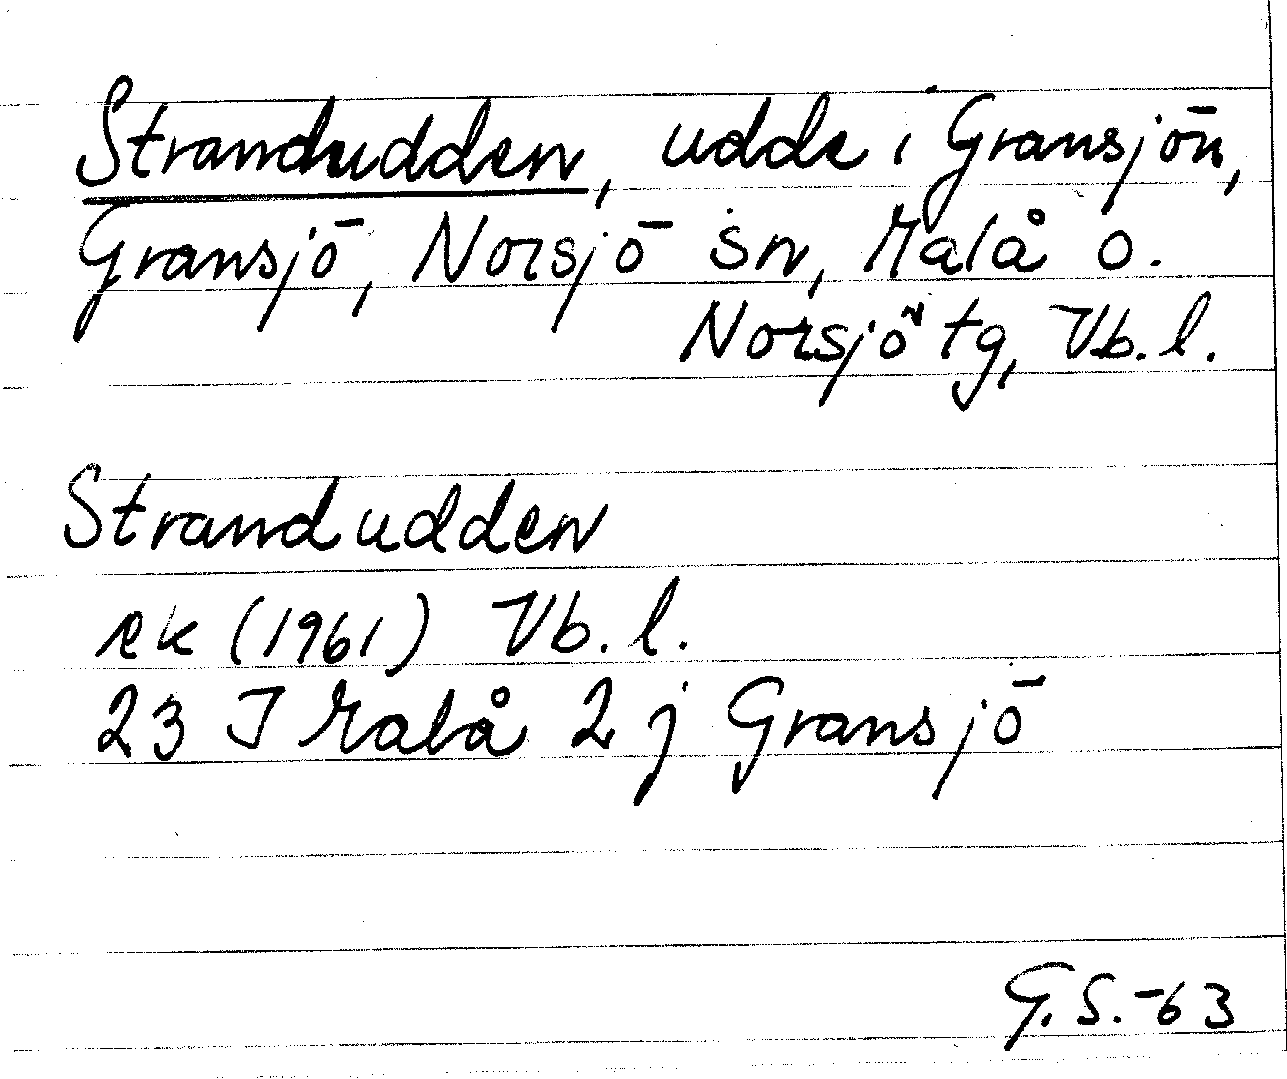 Strandudden, udde i Gransjön,
Gransjö, Norsjö sn, Malå o.
Norsjö tg, Vb. l.
Strandudden
ek (1961) Vb. l.
23 J Malå 2 j Gransjö
G.S.-63